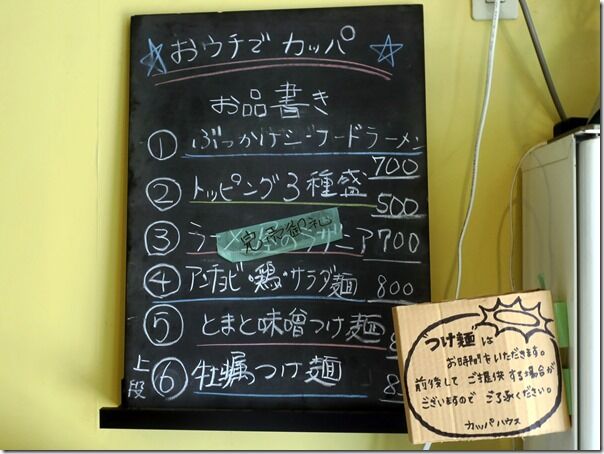 ☆おウチで カッパ☆
お品書き
① ぶっかけシーフードラーメン
700
② トッピング3種盛
500
③ ラー
完売御礼
ニア 700
④ アンチョビ・鶏・サラダ麺 800
⑤ とまと味噌つけ麺 8
上段 ⑥ 牡蠣つけ麺 8
つけ麺は
お時間をいただきます。
前後してご提供する場合が
ございますので ご了承ください。
カッパハウス